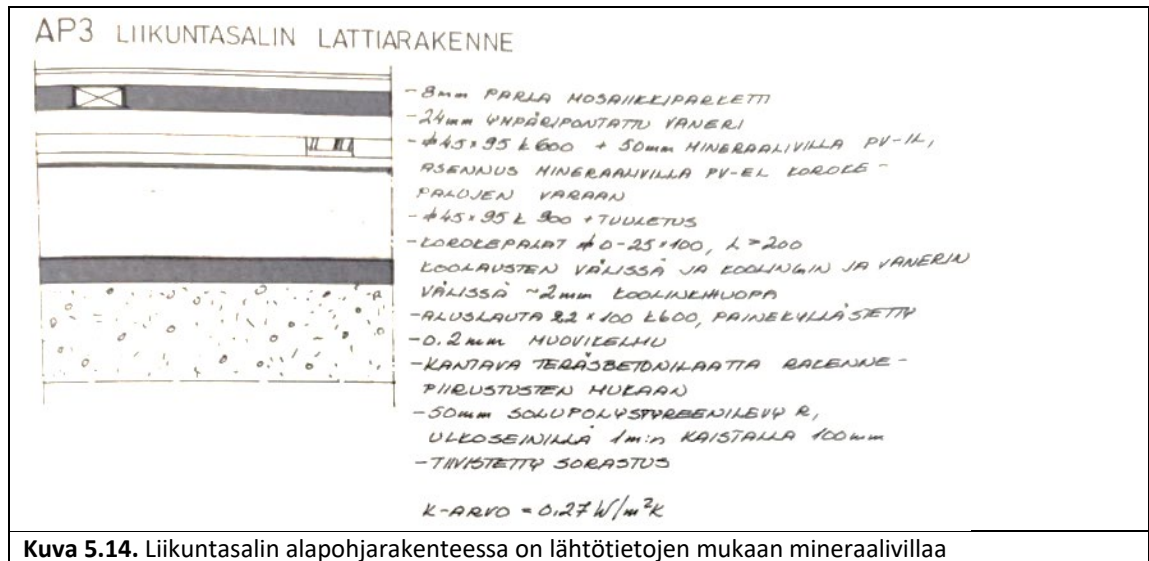 AP3 LIIKUNTASALIN LATTIARAKENNE
- 8mm PARLA MOSAIIKKIPARKETTI
- 24mm YMPÄRIPONTATTU VANERI
- 45×95 k600 + 50mm MINERAALIVILLA PV-IL,
ASENNUS MINERAALIVILLA PV-EL KOROKE-
PALOJEN VARAAN
- 45×95 k 900 + TUULETUS
- KOROKEPALAT 0-25×100, L=200
KOOLAUSTEN VÄLISSÄ JA KOOLINGIN JA VANERIN
VÄLISSÄ ~2mm KOOLINKIHUOPA
- ALUSLAUTA 22×100 k600, PAINEKYLLÄSTETTY
- 0.2mm MUOVIKELMU
- KANTAVA TERÄSBETONILAATTA RAKENNE-
PIIRUSTUSTEN MUKAAN
- 50mm SOLUPOLYSTYREENILEVY R,
ULKOSEINILLÄ 1m:n KAISTALLA 100mm
- TIIVISTETTY SORASTUS
K-ARVO = 0,27 W/m²K
Kuva 5.14. Liikuntasalin alapohjarakenteessa on lähtötietojen mukaan mineraalivillaa